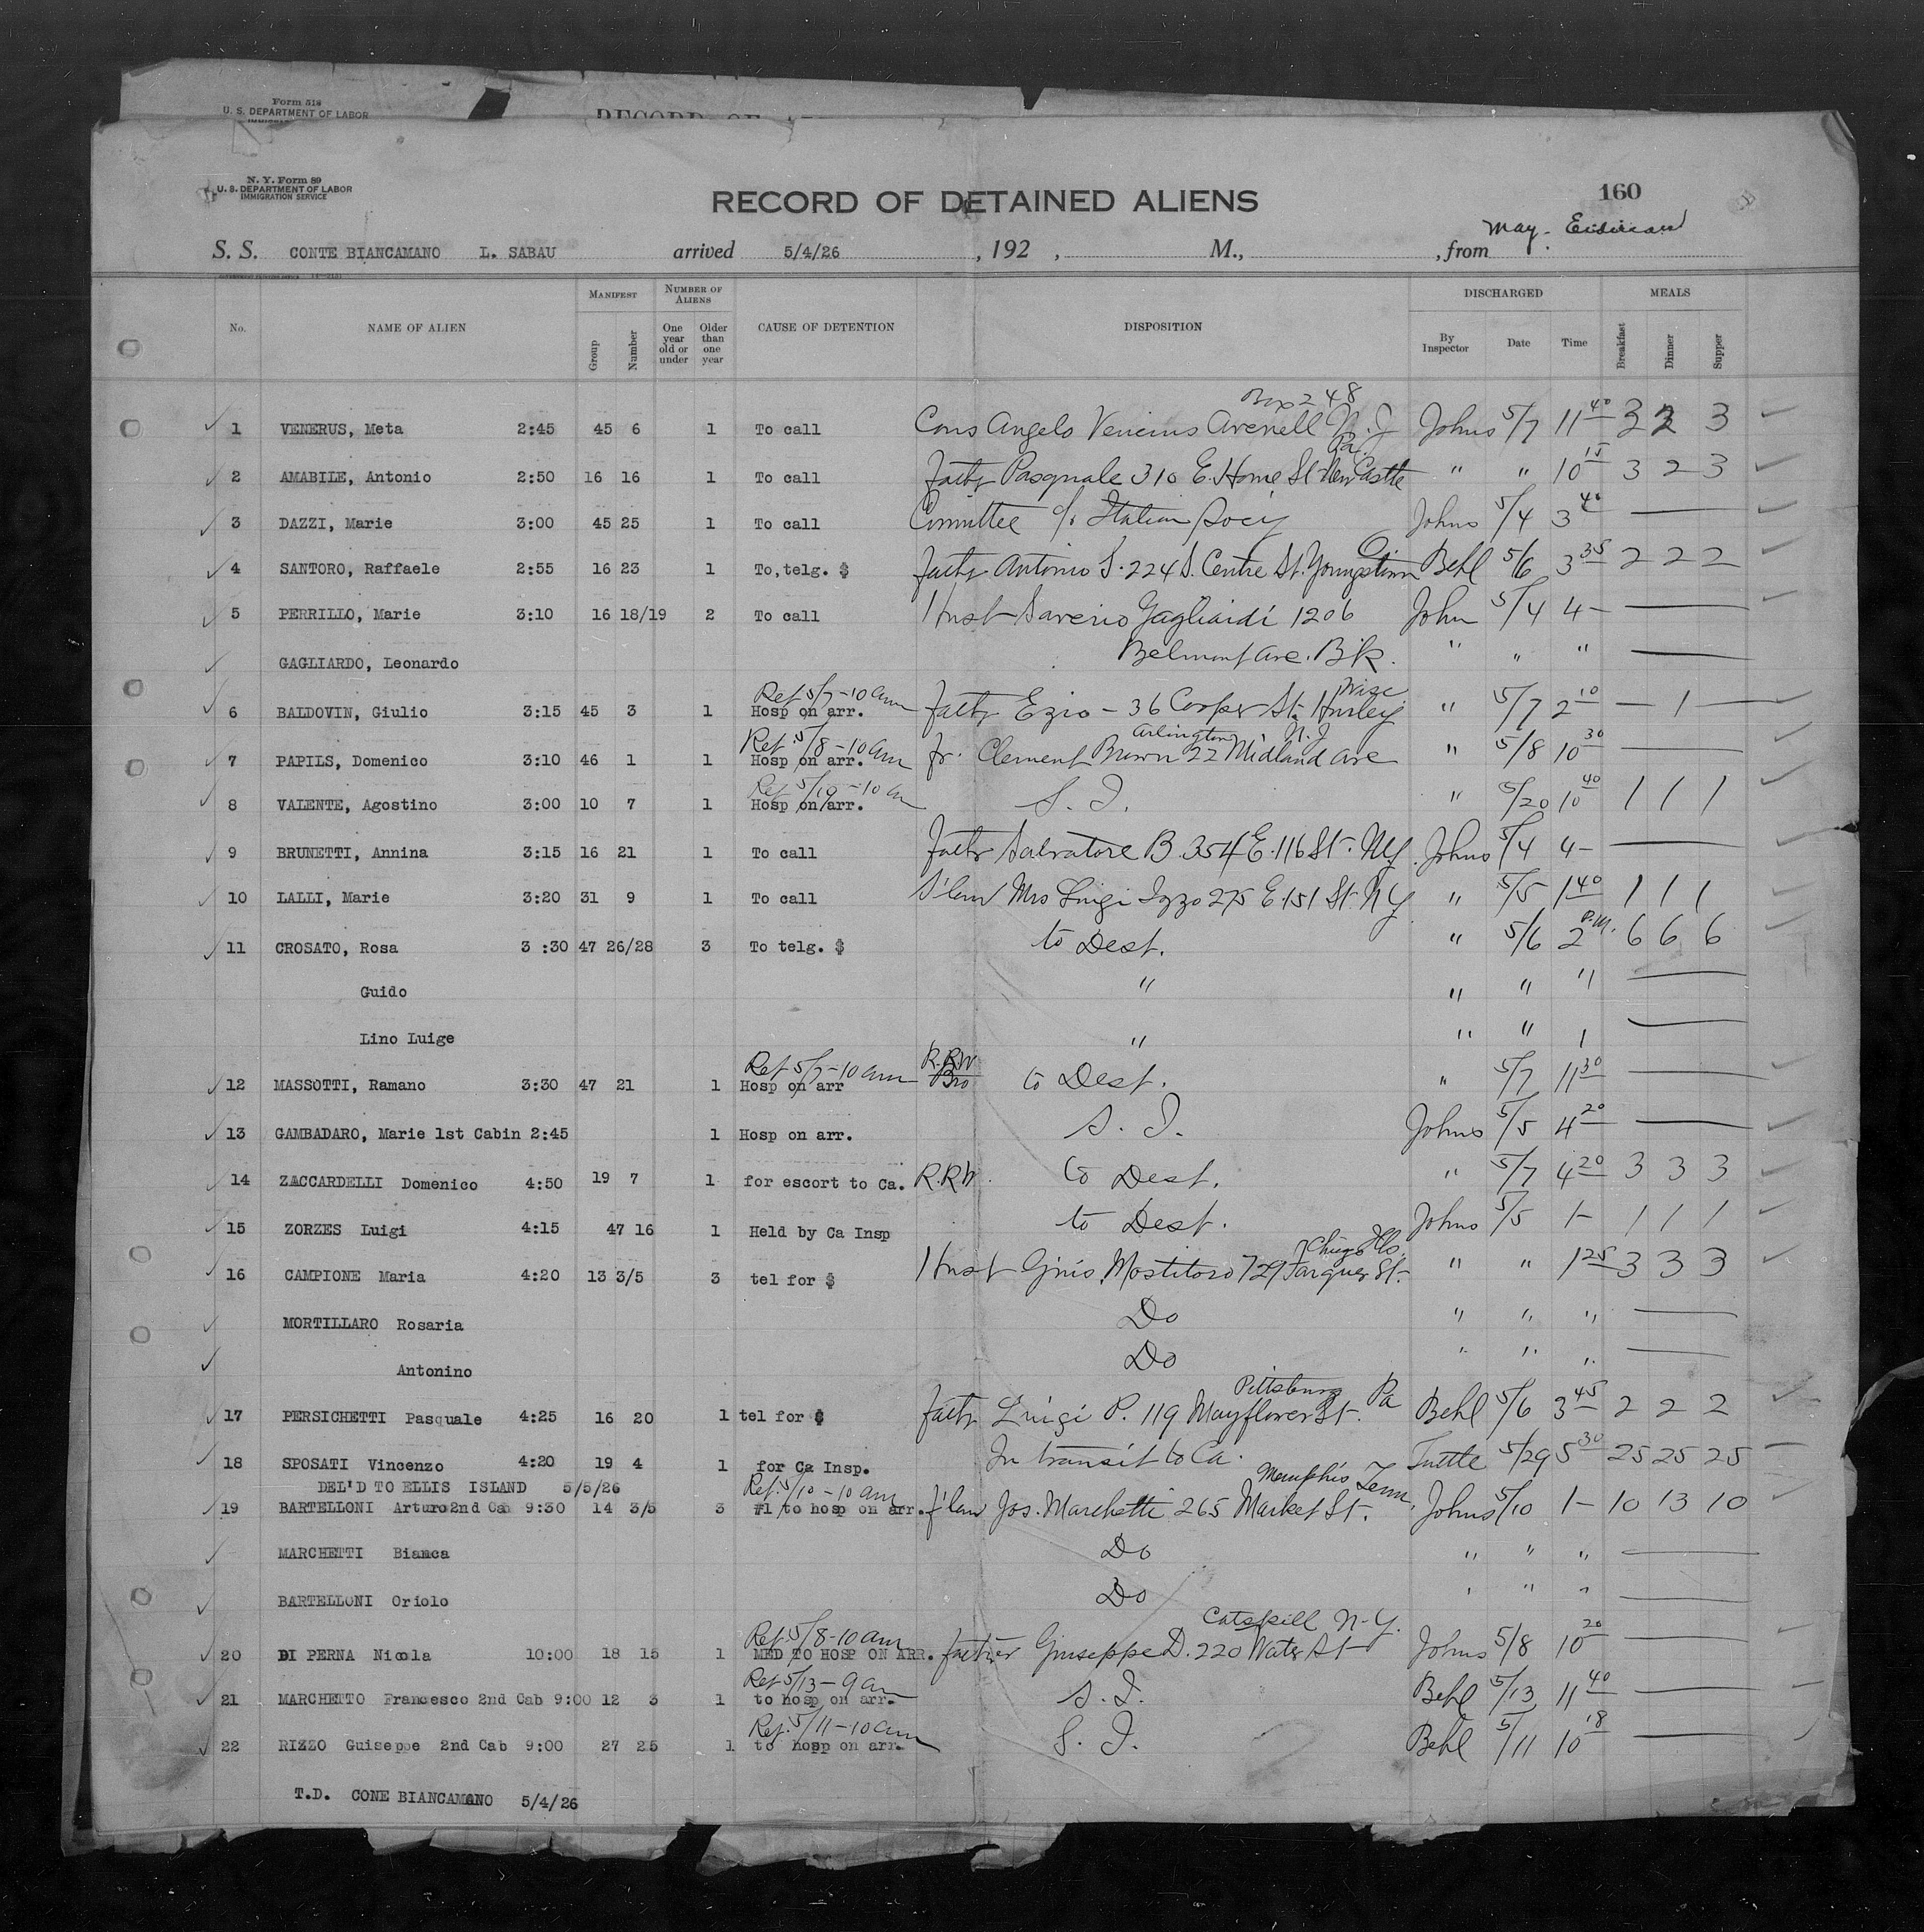 Form 518
U. S. DEPARTMENT OF LABOR
RECORD OF
N. Y. Form 89
U. S. DEPARTMENT OF LABOR
IMMIGRATION SERVICE
RECORD OF DETAINED ALIENS
160
S. S. CONTE BIANCAMANO L. SABAU arrived 5/4/26 , 192 , M., , from May.
No. NAME OF ALIEN MANIFEST Group Number NUMBER OF ALIENS One year old or under Older than one year CAUSE OF DETENTION DISPOSITION DISCHARGED By Inspector Date Time MEALS Breakfast Dinner Supper
Box 248
1 VENERUS, Meta 2:45 45 6 1 To call Cons Angelo Venerus Avenell N. J Johns 5/7 11 40 3 2 3
Pa.
2 AMABILE, Antonio 2:50 16 16 1 To call fathr Pasquale 310 E. Home St New Castle " " 10 15 3 2 3
3 DAZZI, Marie 3:00 45 25 1 To call Committee c/o Italian Socy Johns 5/4 3 40 —
4 SANTORO, Raffaele 2:55 16 23 1 To,telg. $ fathr Antonio S. 224 S. Centre St. Youngstown O Behl 5/6 3 35 2 2 2
5 PERRILLO, Marie 3:10 16 18/19 2 To call Husb Saverio Gagliardi 1206 John 5/4 4 — —
GAGLIARDO, Leonardo Belmont Ave. Bk. " " " —
Ret 5/7-10 am Wisc
6 BALDOVIN, Giulio 3:15 45 3 1 Hosp on arr. fathr Ezio - 36 Copper St. Hurley " 5/7 2 10 — 1 —
Ret. 5/8-10 am Arlington N. J
7 PAPILS, Domenico 3:10 46 1 1 Hosp on arr. fr. Clement Brown 22 Midland Ave " 5/8 10 30 —
Ret 5/19-10 am
8 VALENTE, Agostino 3:00 10 7 1 Hosp on arr. S. I. " 5/20 10 40 1 1 1
9 BRUNETTI, Annina 3:15 16 21 1 To call fathr Salvatore B. 354 E. 116 St. NY. Johns 5/4 4- —
10 LALLI, Marie 3:20 31 9 1 To call S'law Mrs Luigi Izzo 275 E 151 St. N Y " 5/5 1 40 1 1 1
11 CROSATO, Rosa 3 :30 47 26/28 3 To telg. $ to Dest. " 5/6 2 P.M. 6 6 6
Guido " " " " —
Lino Luige " " " 1 —
Ret 5/7-10 am R.RW
12 MASSOTTI, Ramano 3:30 47 21 1 Hosp on arr Bro to Dest. " 5/7 11 30 —
13 GAMBADARO, Marie 1st Cabin 2:45 1 Hosp on arr. S. I. Johns 5/5 4 20 —
14 ZACCARDELLI Domenico 4:50 19 7 1 for escort to Ca. R.RW. to Dest. " 5/7 4 20 3 3 3
15 ZORZES Luigi 4:15 47 16 1 Held by Ca Insp to Dest. Johns 5/5 1- 1 1 1
Chicago Ills.
16 CAMPIONE Maria 4:20 13 3/5 3 tel for $ Husb 729 St. " " 1 25 3 3 3
MORTILLARO Rosaria Do " " " —
Antonino Do " " " —
Pittsburg Pa
17 PERSICHETTI Pasquale 4:25 16 20 1 tel for $ fathr Luigi P. 119 Mayflower St. Behl 5/6 3 45 2 2 2
18 SPOSATI Vincenzo 4:20 19 4 1 for Ca Insp. In transit to Ca. Tuttle 5/29 5 30 25 25 25
DEL'D TO ELLIS ISLAND 5/5/26
Ret. 5/10-10 am Memphis Tenn.
19 BARTELLONI Arturo 2nd Cab 9:30 14 3/5 3 #1 to hosp on arr. f'law Jos. Marchetti 265 Market St. Johns 5/10 1- 10 13 10
MARCHETTI Bianca Do " " " —
BARTELLONI Oriolo Do " " " —
Ret. 5/8-10 am Catskill N-Y.
20 DI PERNA Nicola 10:00 18 15 1 MED TO HOSP ON ARR. father Giuseppe D. 220 Water St Johns 5/8 10 20 —
Ret 5/13-9 am
21 MARCHETTO Francesco 2nd Cab 9:00 12 3 1 to hosp on arr. S. I. Behl 5/13 11 40 —
Ret. 5/11-10 am
22 RIZZO Guiseppe 2nd Cab 9:00 27 25 1 to hosp on arr. S. I. Behl 5/11 10 18 —
T.D. CONE BIANCAMANO 5/4/26